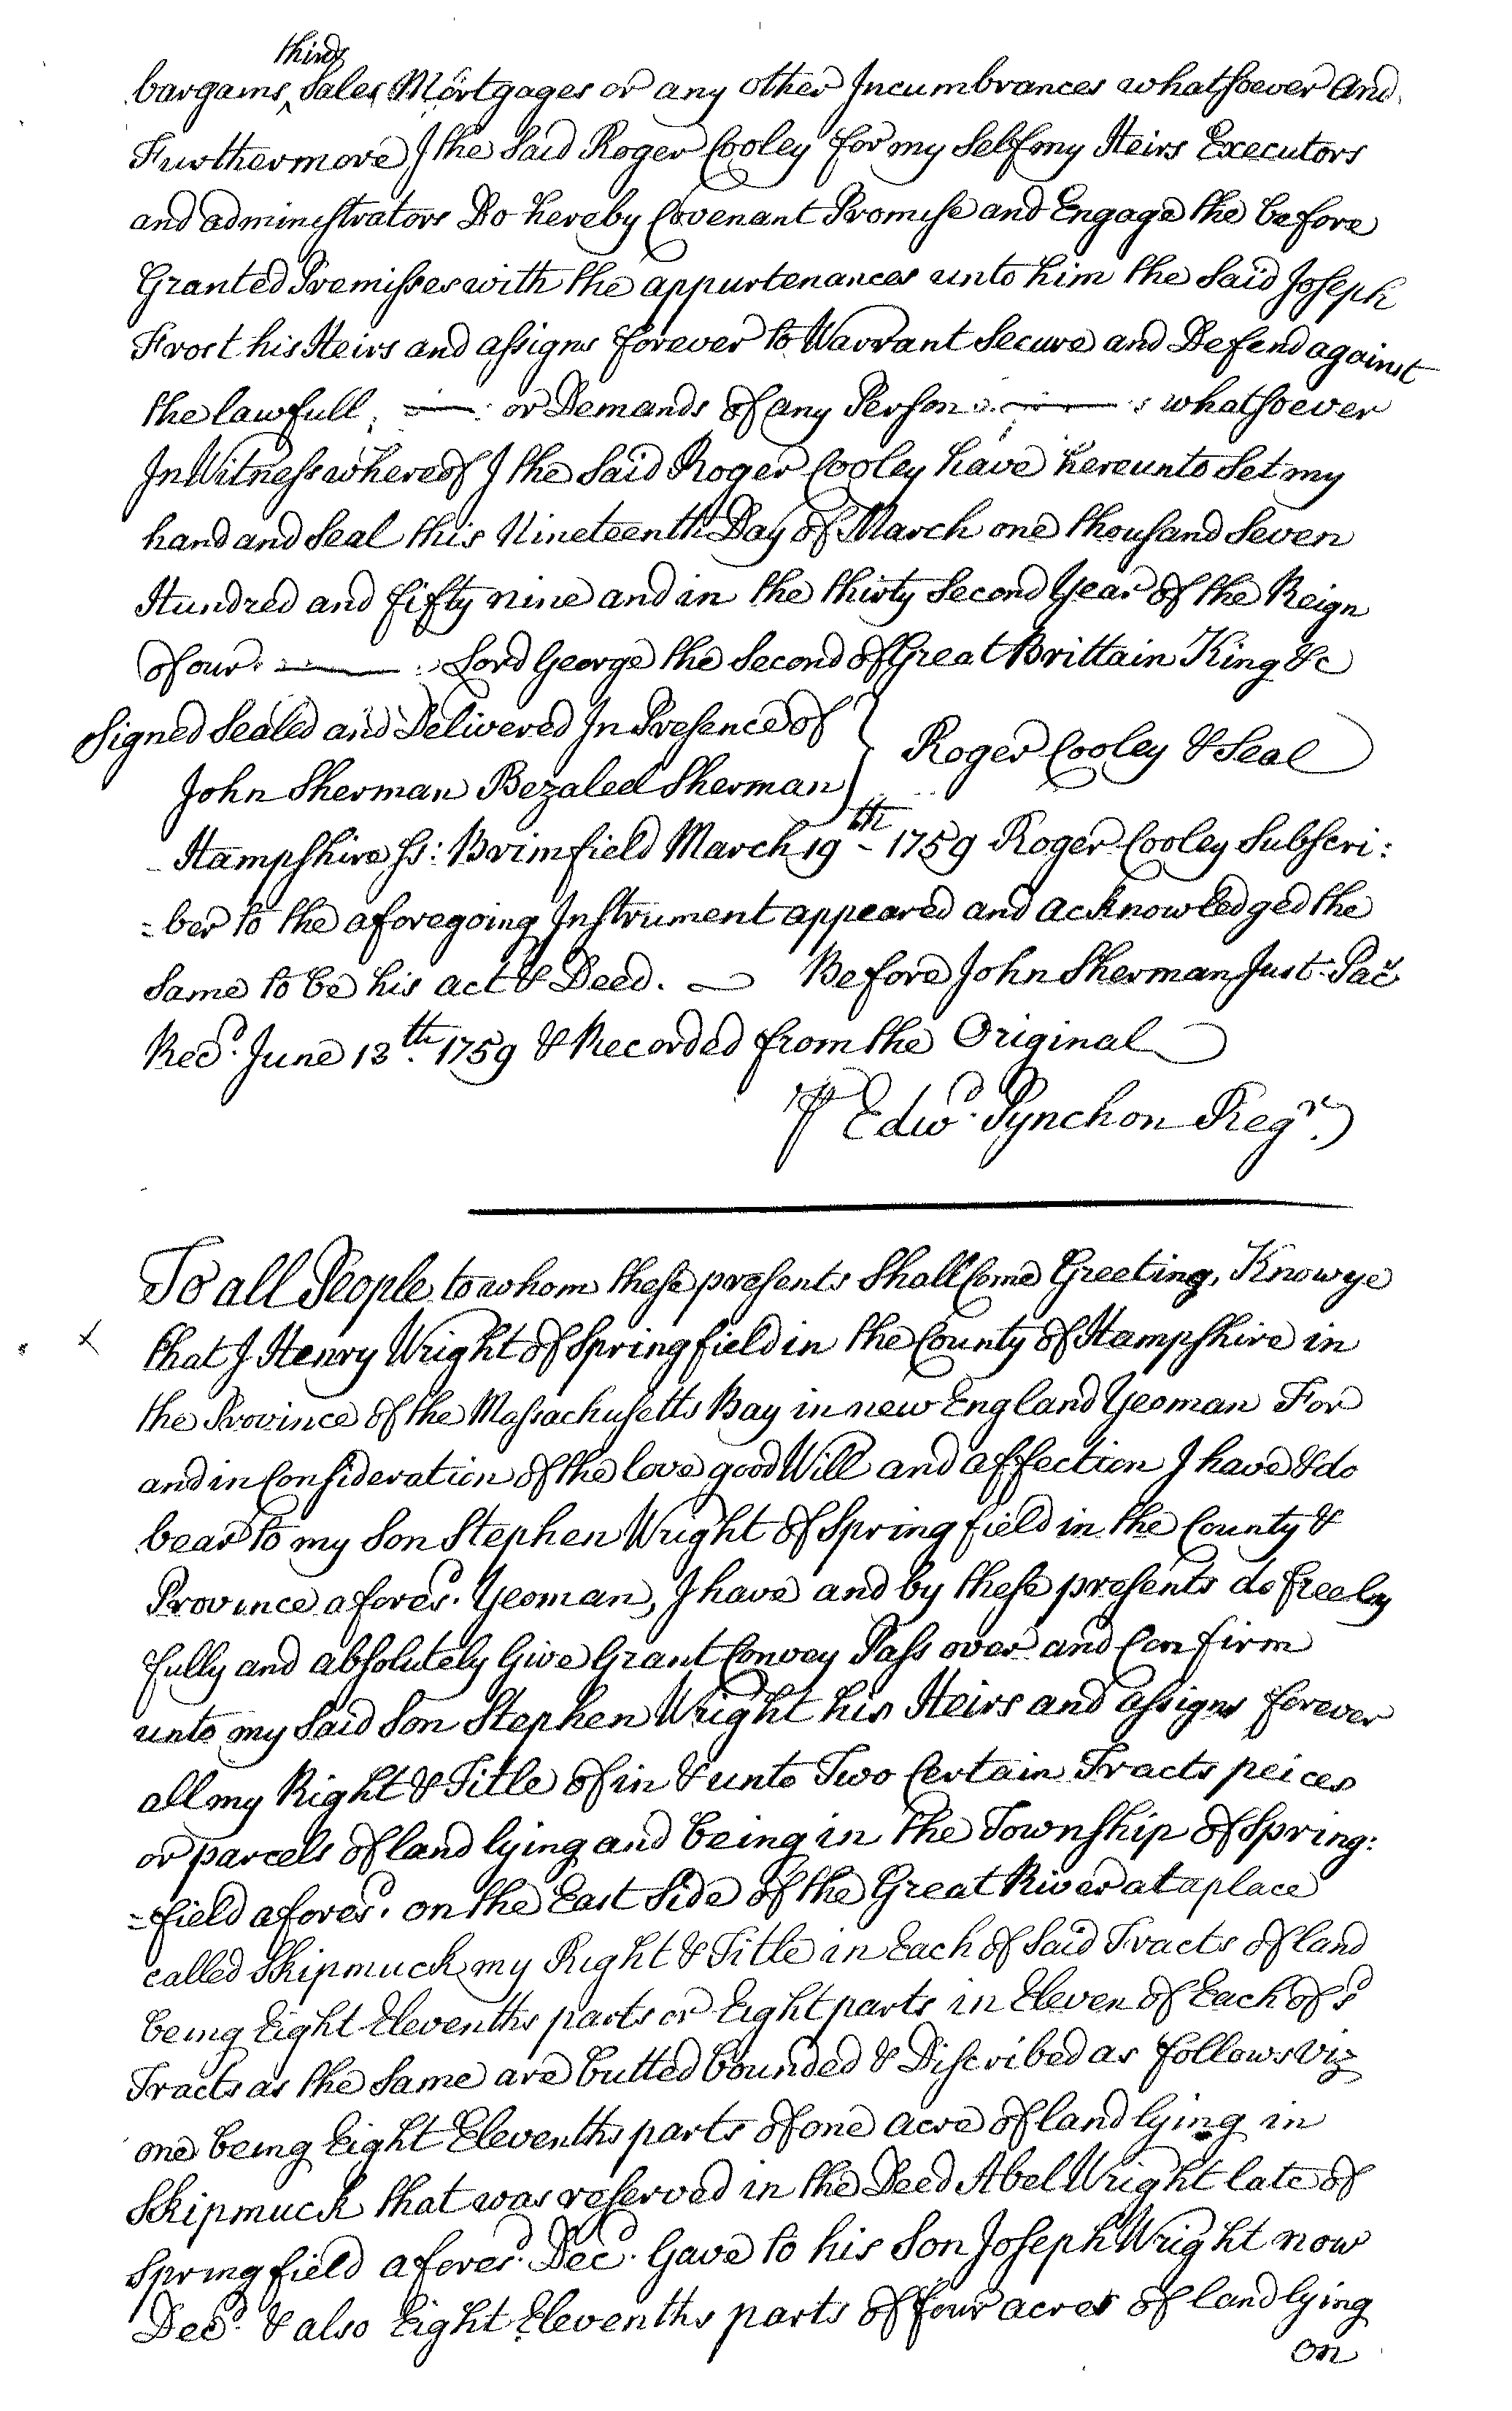 thirds
bargains ‸ Sales Mortgages or any other Incumbrances whatsoever And
Furthermore I the Said Roger Cooley for my Self my Heirs Executors
and administrators Do hereby Covenant Promise and Engage the before
Granted Premisses with the appurtenances unto him the Said Joseph
Frost his Heirs and assigns forever to Warrant Secure and Defend against
the lawfull —— or Demands of any Person —— whatsoever
In Witness whereof I the Said Roger Cooley have hereunto Set my
hand and Seal this Nineteenth Day of March one thousand Seven
Hundred and fifty nine and in the thirty Second Year of the Reign
of our —— Lord George the Second of Great Brittain King &c
Signed Sealed and Delivered In Presence of } Roger Cooley & Seal
John Sherman Bezaleel Sherman
Hampshire Ss: Brimfield March 19th 1759 Roger Cooley Subscri:
=ber to the aforegoing Instrument appeared and acknowledged the
Same to be his act & Deed. — Before John Sherman Just. Pac
Recd. June 13th. 1759 & Recorded from the Original
⅌ Edwd. Pynchon Regr.
To all People to whom these presents Shall Come Greeting, Know ye
x that I Henry Wright of Springfield in the County of Hampshire in
the Province of the Massachusetts Bay in new England Yeoman For
and in Consideration of the love good Will and affection I have & do
bear to my Son Stephen Wright of Springfield in the County &
Province aforesd. Yeoman, I have and by these presents do freely
fully and absolutely Give Grant Convey Pass over and Confirm
unto my Said Son Stephen Wright his Heirs and assigns forever
all my Right & Title of in & unto Two Certain Tracts peices
or parcels of land lying and being in the Township of Spring:
=field aforesd. on the East Side of the Great River at a place
called Skipmuck my Right & Title in Each of Said Tracts of land
being Eight Elevenths parts or Eight parts in Eleven of Each of sd
Tracts as the Same are butted bounded & Discribed as follows Viz
one being Eight Elevenths parts of one acre of land lying in
Skipmuck that was reserved in the Deed Abel Wright late of
Springfield aforesd. Decd. Gave to his Son Joseph Wright now
Decd. & also Eight Elevenths parts of four acres of land lying
on